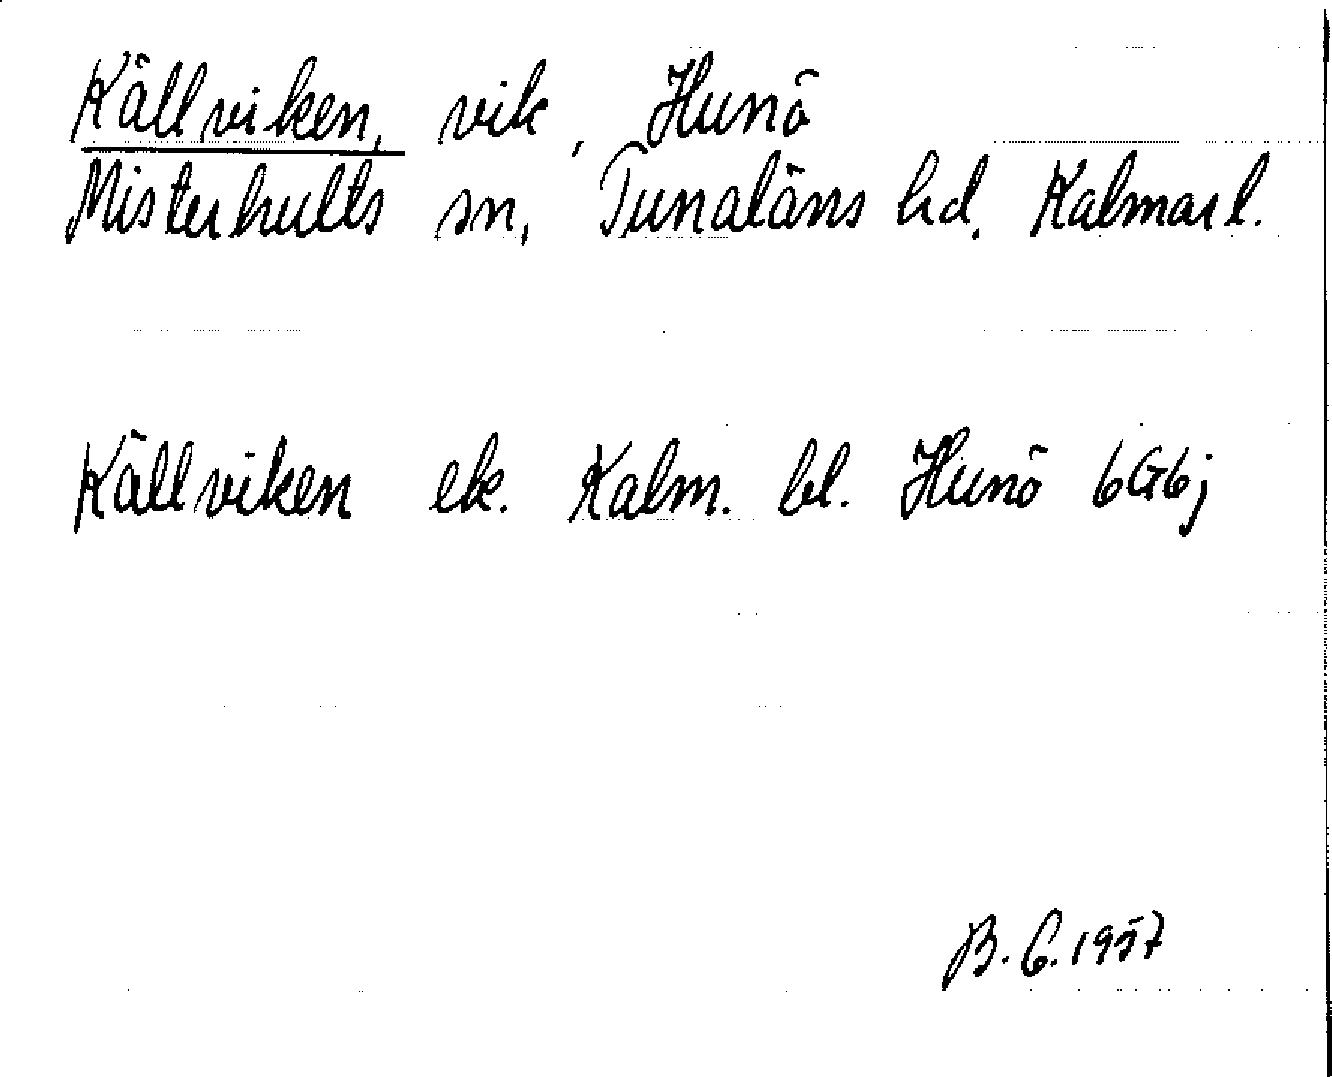 Källviken, vik, Hunö
Misterhults sn, Tunaläns hd, Kalmar l.
Källviken ek. Kalm. bl. Hunö 6G6j
B. G. 1957